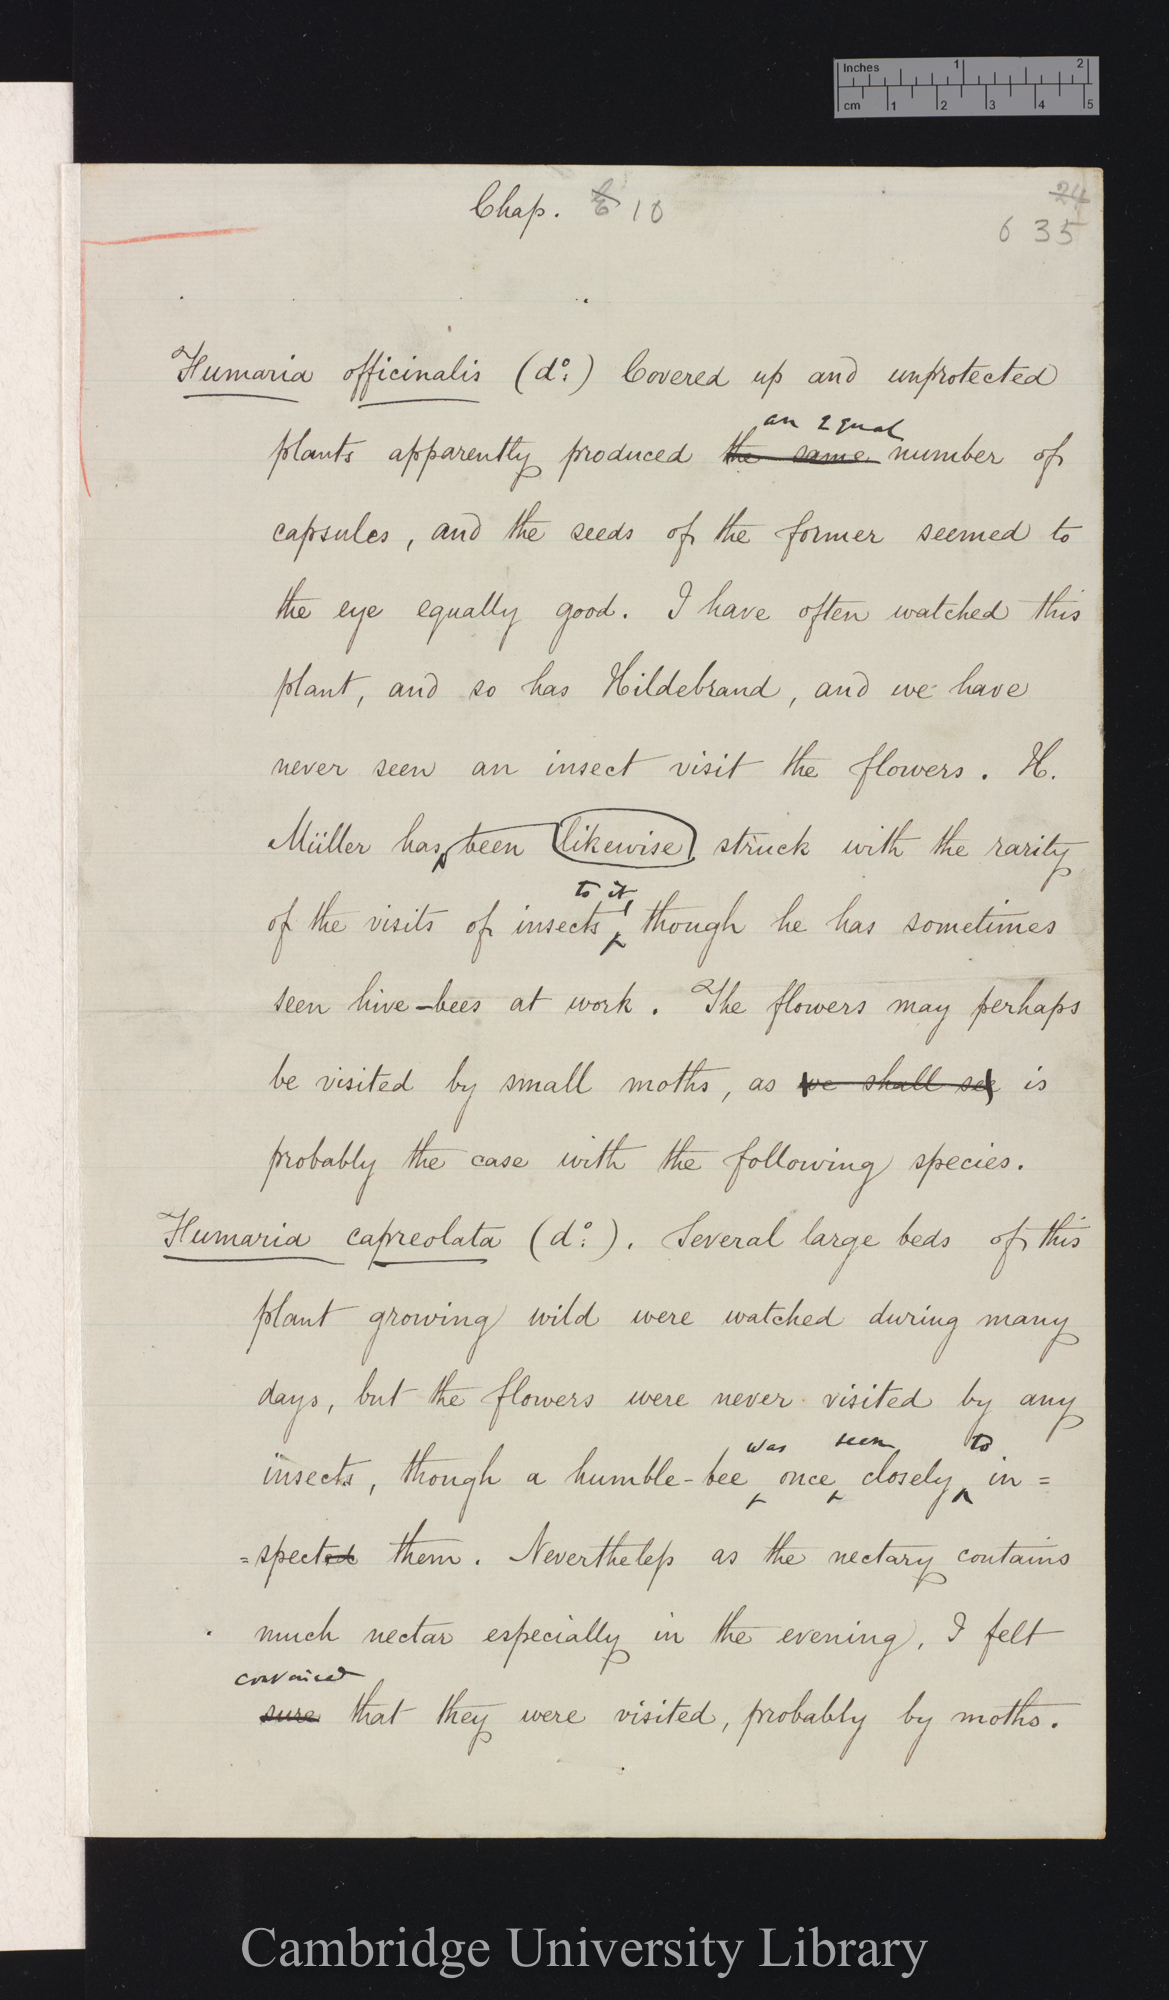 Inches 1 2
cm 1 2 3 4 5
Chap. 6 10
24
635
Fumaria officinalis (do.) Covered up and unprotected
an equal
plants apparently produced the same number of
capsules, and the seeds of the former seemed to
the eye equally good. I have often watched this
plant, and so has Hildebrand, and we have
never seen an insect visit the flowers. H.
Müller has been likewise struck with the rarity
to it,
of the visits of insects, though he has sometimes
seen hive-bees at work. The flowers may perhaps
be visited by small moths, as we shall see is
probably the case with the following species.
Fumaria capreolata (do.). Several large beds of this
plant growing wild were watched during many
days, but the flowers were never visited by any
was seen to
insects, though a humble-bee once closely in=
=spected them. Nevertheless as the nectary contains
much nectar especially in the evening, I felt
convinced
sure that they were visited, probably by moths.
Cambridge University Library